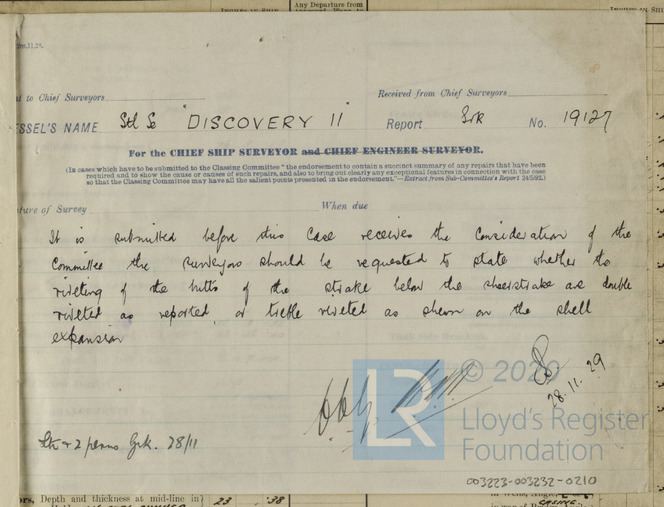 Any Departure from
t to Chief Surveyors
Received from Chief Surveyors
ESSEL'S NAME Stl Sc "DISCOVERY II" Report Grk No. 19127
For the CHIEF SHIP SURVEYOR and CHIEF ENGINEER SURVEYOR.
(In cases which have to be submitted to the Classing Committee "the endorsement to contain a succinct summary of any repairs that have been
required and to show the cause or causes of such repairs, and also to bring out clearly any exceptional features in connection with the case
so that the Classing Committee may have all the salient points presented in the endorsement."—Extract from Sub-Committee's Report 24/5/92.)
ture of Survey When due
It is submitted before this case receives the consideration of the
Committee the Surveyors should be requested to state whether the
riveting of the butts of the strake below the sheerstrake are double
riveted as reported, or treble riveted as shewn on the shell
expansion
28.11.29
© 2020
Lloyd's Register
Foundation
LR
Ltr & 2 plans Grk. 28/11
003223-003232-0210
rs, Depth and thickness at mid-line in 23 .38